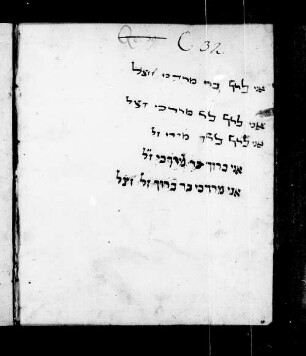 C 32
אני ברוך בר מרדכי זצל
אני ברוך בר מרדכי זצל
אני ברוך זל
אני ברוך בר מרדכי ז"ל
אני מרדכי בר ברוך זל זצל